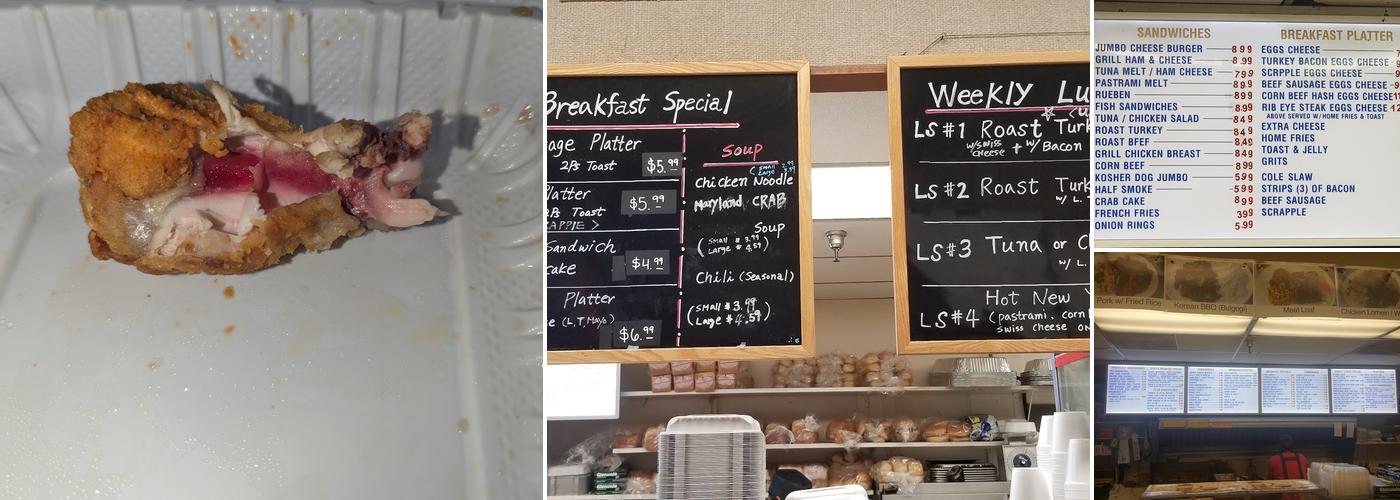 Breakfast Special
age Platter
2Pcs Toast $5.99
latter
Toast
$5.99
APPIE >
Sandwich
cake $4.99
Platter
e (L,T,MAYO)
$6.99
Soup
(Small
Large
Chicken Noodle
Maryland CRAB
Soup
(Small $3.99
Large $4.59)
Chili (Seasonal)
(Small $3.99
Large $4.59)
Weekly Lu
LS#1 Roast Turk
w/swiss cheese + w/Bacon
LS#2 Roast Turk
w/L.
LS#3 Tuna or C
w/L.
Hot New Y
LS#4 (pastrami, corn
swiss cheese on
SANDWICHES
JUMBO CHEESE BURGER 8.99
GRILL HAM & CHEESE 8.99
TUNA MELT / HAM CHEESE 7.99
PASTRAMI MELT 8.99
RUEBEN 8.99
FISH SANDWICHES 8.99
TUNA / CHICKEN SALAD 8.49
ROAST TURKEY 8.49
ROAST BEEF 8.49
GRILL CHICKEN BREAST 8.49
CORN BEEF 8.99
KOSHER DOG JUMBO 5.99
HALF SMOKE 5.99
CRAB CAKE 8.99
FRENCH FRIES 3.99
ONION RINGS 5.99
BREAKFAST PLATTER
EGGS CHEESE
TURKEY BACON EGGS CHEESE
SCRPPLE EGGS CHEESE
BEEF SAUSAGE EGGS CHEESE
CORN BEEF HASH EGGS CHEESE
RIB EYE STEAK EGGS CHEESE
ABOVE SERVED W/HOME FRIES & TOAST
EXTRA CHEESE
HOME FRIES
TOAST & JELLY
GRITS
COLE SLAW
STRIPS (3) OF BACON
BEEF SAUSAGE
SCRAPPLE
Pork w/ Fried Rice
Korean BBQ (Bulgogi)
Meat Loaf
Chicken Lomen / W